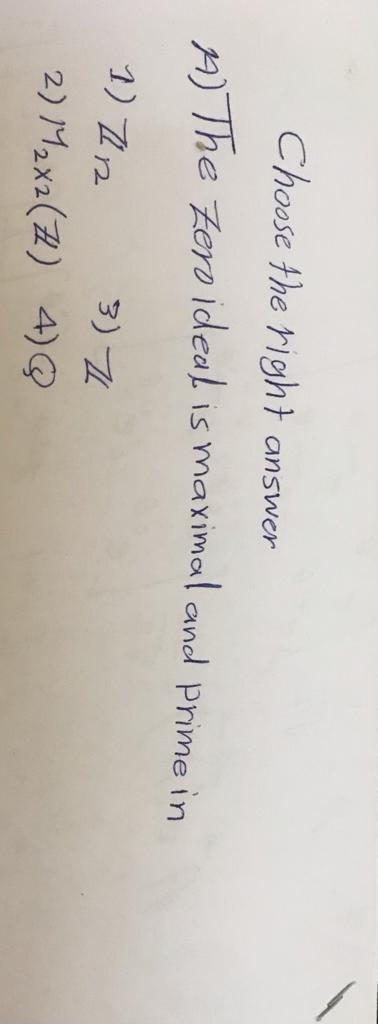 Choose the right answer
A) The zero ideal is maximal and prime in
1) ℤ12 3) ℤ
2) M2x2(ℤ) 4) ℚ